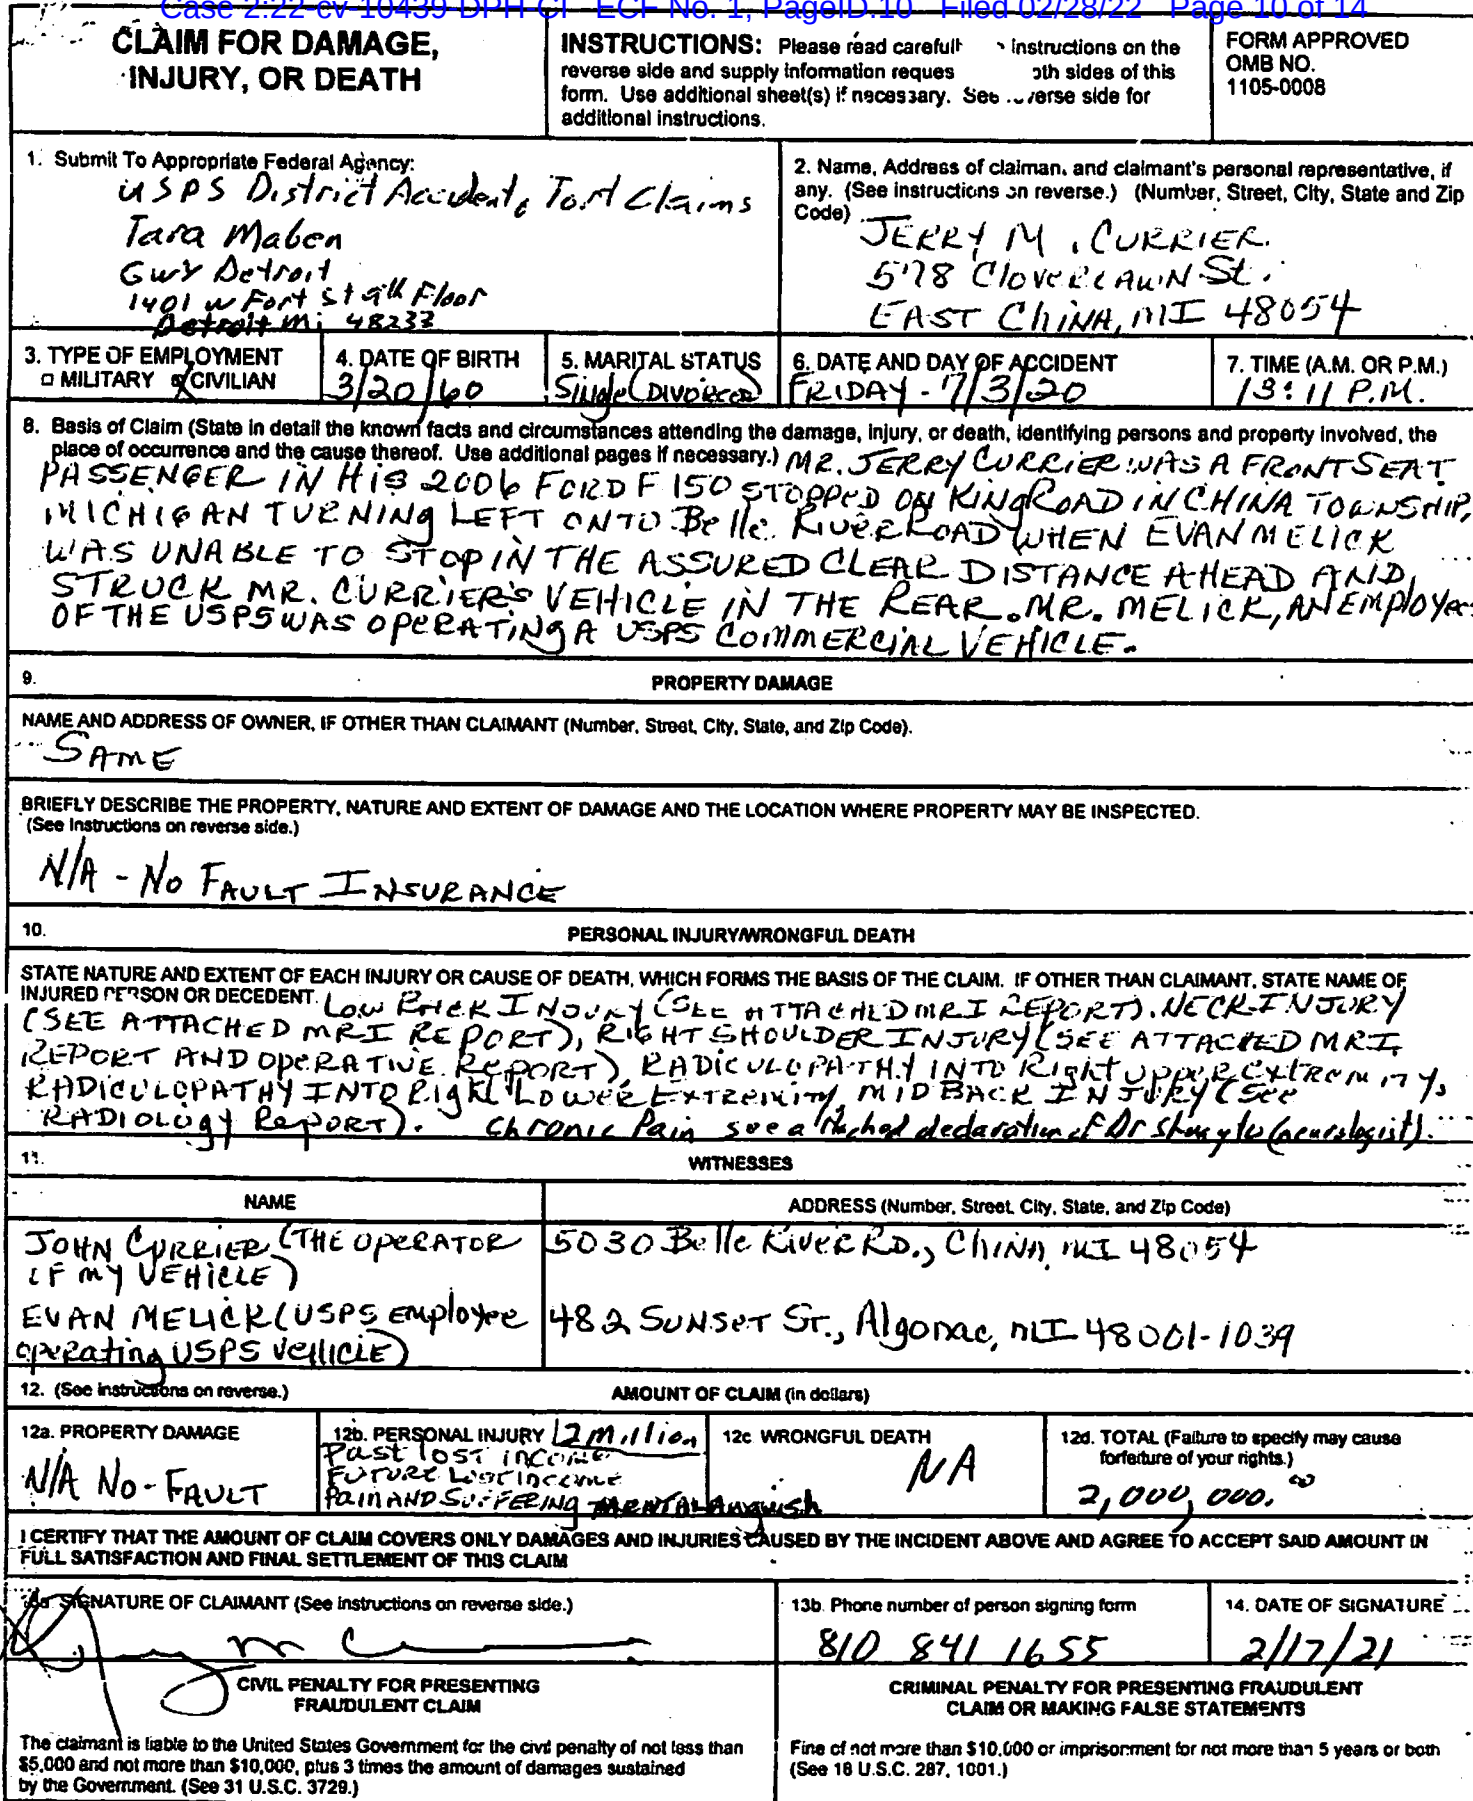 Case 2:22-cv-10439-DPH-CI ECF No. 1, PageID.10 Filed 02/28/22 Page 10 of 14
CLAIM FOR DAMAGE,
INJURY, OR DEATH
INSTRUCTIONS: Please read carefull instructions on the
reverse side and supply information reques oth sides of this
form. Use additional sheet(s) if necessary. See erse side for
additional instructions.
FORM APPROVED
OMB NO.
1105-0008
1. Submit To Appropriate Federal Agency:
USPS District Accident, Tort Claims
Tara Maben
GWY Detroit
1401 W Fort St 9th Floor
Detroit Mi 48233
2. Name, Address of claiman, and claimant's personal representative, if
any. (See instructions on reverse.) (Number, Street, City, State and Zip
Code)
JERRY M. CURRIER.
578 CLOVERLAWN St.
EAST CHINA, MI 48054
3. TYPE OF EMPLOYMENT
MILITARY CIVILIAN
4. DATE OF BIRTH
3/20/60
5. MARITAL STATUS
Single (DIVORCED)
6. DATE AND DAY OF ACCIDENT
FRIDAY - 7/3/20
7. TIME (A.M. OR P.M.)
13:11 P.M.
8. Basis of Claim (State in detail the known facts and circumstances attending the damage, injury, or death, identifying persons and property involved, the
place of occurrence and the cause thereof. Use additional pages if necessary.) MR. JERRY CURRIER WAS A FRONT SEAT
PASSENGER IN HIS 2006 FORD F 150 STOPPED ON KING ROAD IN CHINA TOWNSHIP,
MICHIGAN TURNING LEFT ONTO Belle RIVER ROAD WHEN EVAN MELICK
WAS UNABLE TO STOP IN THE ASSURED CLEAR DISTANCE AHEAD AND,
STRUCK MR. CURRIER'S VEHICLE IN THE REAR. MR. MELICK, AN EMPLOYEE
OF THE USPS WAS OPERATING A USPS COMMERCIAL VEHICLE.
9.
PROPERTY DAMAGE
NAME AND ADDRESS OF OWNER, IF OTHER THAN CLAIMANT (Number, Street, City, State, and Zip Code).
SAME
BRIEFLY DESCRIBE THE PROPERTY, NATURE AND EXTENT OF DAMAGE AND THE LOCATION WHERE PROPERTY MAY BE INSPECTED.
(See Instructions on reverse side.)
N/A - NO FAULT INSURANCE
10.
PERSONAL INJURY/WRONGFUL DEATH
STATE NATURE AND EXTENT OF EACH INJURY OR CAUSE OF DEATH, WHICH FORMS THE BASIS OF THE CLAIM. IF OTHER THAN CLAIMANT, STATE NAME OF
INJURED PERSON OR DECEDENT. LOW BACK INJURY (SEE ATTACHED MRI REPORT). NECK INJURY
(SEE ATTACHED MRI REPORT), RIGHT SHOULDER INJURY (SEE ATTACHED MRI
REPORT AND OPERATIVE REPORT), RADICULOPATHY INTO Right UPPER EXTREMITY,
RADICULOPATHY INTO Right LOWER EXTREMITY, MID BACK INJURY (See
RADIOLOGY REPORT). Chronic Pain see attached declaration of Dr (neurologist).
11.
WITNESSES
NAME
ADDRESS (Number, Street, City, State, and Zip Code)
JOHN CURRIER (THE OPERATOR
OF MY VEHICLE)
5030 Belle River RD., CHINA, MI 48054
EVAN MELICK (USPS employee
operating USPS VEHICLE)
482 SUNSET ST., Algonac, MI 48001-1039
12. (See instructions on reverse.)
AMOUNT OF CLAIM (in dollars)
12a. PROPERTY DAMAGE
N/A No-FAULT
12b. PERSONAL INJURY 2 Million
Past lost income
FUTURE LOST INCOME
PAIN AND SUFFERING MENTAL Anguish
12c WRONGFUL DEATH
NA
12d. TOTAL (Failure to specify may cause
forfeiture of your rights.)
2,000,000.00
I CERTIFY THAT THE AMOUNT OF CLAIM COVERS ONLY DAMAGES AND INJURIES CAUSED BY THE INCIDENT ABOVE AND AGREE TO ACCEPT SAID AMOUNT IN
FULL SATISFACTION AND FINAL SETTLEMENT OF THIS CLAIM
SIGNATURE OF CLAIMANT (See instructions on reverse side.)
13b. Phone number of person signing form
810 841 1655
14. DATE OF SIGNATURE
2/17/21
CIVIL PENALTY FOR PRESENTING
FRAUDULENT CLAIM
The claimant is liable to the United States Government for the civil penalty of not less than
$5,000 and not more than $10,000, plus 3 times the amount of damages sustained
by the Government. (See 31 U.S.C. 3729.)
CRIMINAL PENALTY FOR PRESENTING FRAUDULENT
CLAIM OR MAKING FALSE STATEMENTS
Fine of not more than $10,000 or imprisonment for not more than 5 years or both
(See 18 U.S.C. 287, 1001.)